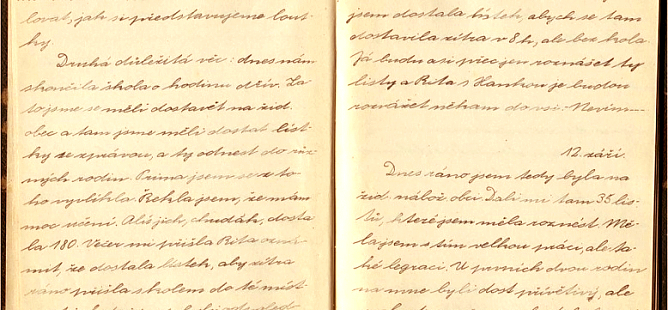 lovat, jak si představujeme lout-
ky.
Druhá důležitá věc: dnes nám
skončila škola o hodinu dřív. Za-
to jsme se měli dostavit na žid.
obec a tam jsme měli dostat líst-
ky se zprávou, a ty odnést do růz-
ných rodin. Prima jsem se z to-
ho vyvlíkla. Řekla jsem, že mám
moc učení. Ale jich, chudák, dosta-
la 180. Večer mi přišla Rita ozná-
mit, že dostala lístek, aby zítra
ráno přišla s kolem do té míst-
jsem dostala lístek, abych se tam
dostavila zítra v 8 h, ale bez kola.
Já budu asi přec jen roznášet ty
listy a Rita s Hankou je budou
rozvážet někam do vsi. Nevím—
12. září.
Dnes ráno jsem tedy byla na
žid. nábož. obci. Dali mi tam 35 lis-
tů, které jsem měla roznést. Mě-
la jsem s tím velkou práci, ale ta-
ké legraci. V prvních dvou rodin
na mne byli dost přívětiví, ale